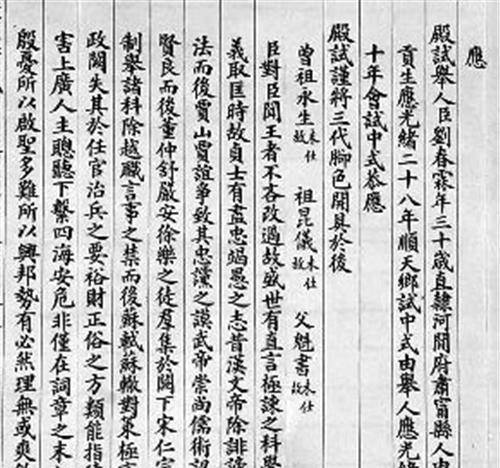 應
殿試舉人臣劉春霖年三十歲直隸河間府肅甯縣人由
貢生應光緒二十八年順天鄉試中式由舉人應光
十年會試中式恭應
殿試謹將三代腳色開具於後
曾祖永生未仕故 祖昆儀未仕故 父魁書未仕故
臣對臣聞王者不吝改過故盛世有直言極諫之科學
義取匡時故貞士有盡忠竭愚之志昔漢文帝除誹
法而後賈山賈誼爭致其忠讜之謨武帝崇尚儒術
賢良而後董仲舒嚴安徐樂之徒羣集於闕下宋仁宗
制舉諸科除越職言事之禁而後蘇軾蘇轍對策極
政闕失其於任官治兵之要裕財正俗之方類能指
害上廣人主聰聽下繫四海安危非僅在詞章之末
殷憂所以啟聖多難所以興邦勢有必然理無或爽